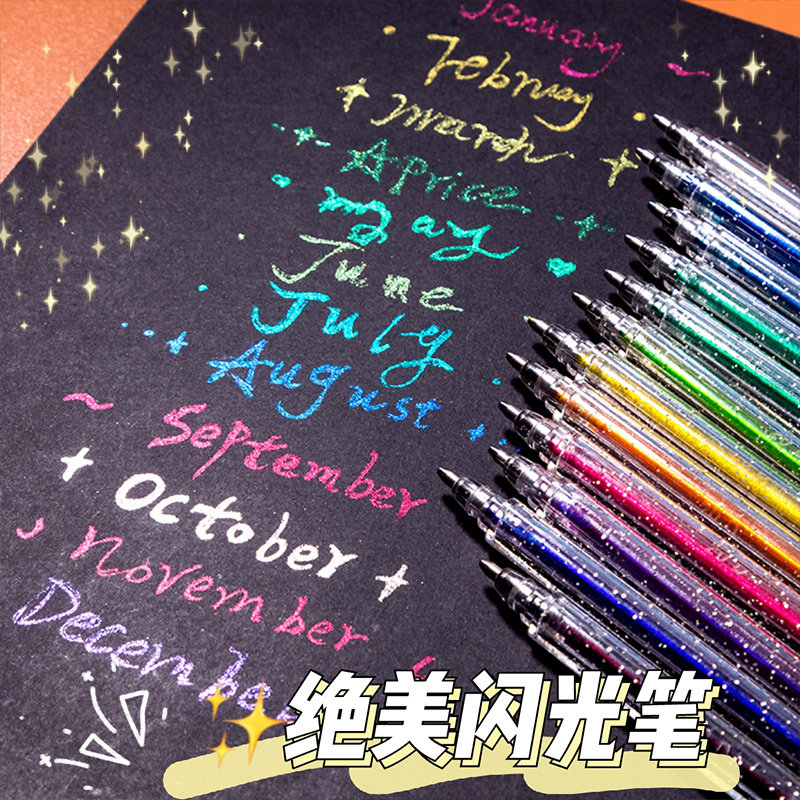 January
February
march
Aprice
may
June
July
August
September
October
november
December
绝美闪光笔